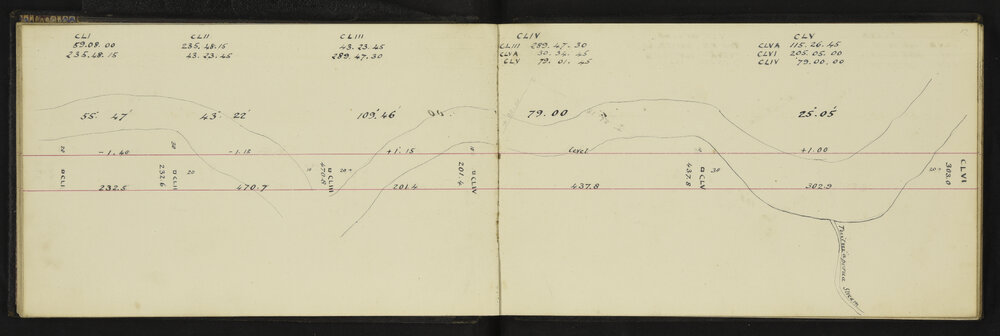 CLI
59.08.00
235.48.15
CLII
235.48.15
43.23.45
CLIII
43.23.45
289.47.30
CLIV
CLIII 289.47.30
CLVA 30.34.45
CLV 79.01.45
CLV
CLVA 115.26.45
CLVI 205.05.00
CLIV 79.00.00
55° 47'
43° 22'
109° 46'
79.00
25° 05'
-1.40
-1.15
+1.15
Level
+1.00
CLI
232.6
CLII
20
470.8
CLIII
20
201.4
CLIV
437.8
CLV
30
20
303.0
CLVI
232.5
470.7
201.4
437.8
302.9
Stream